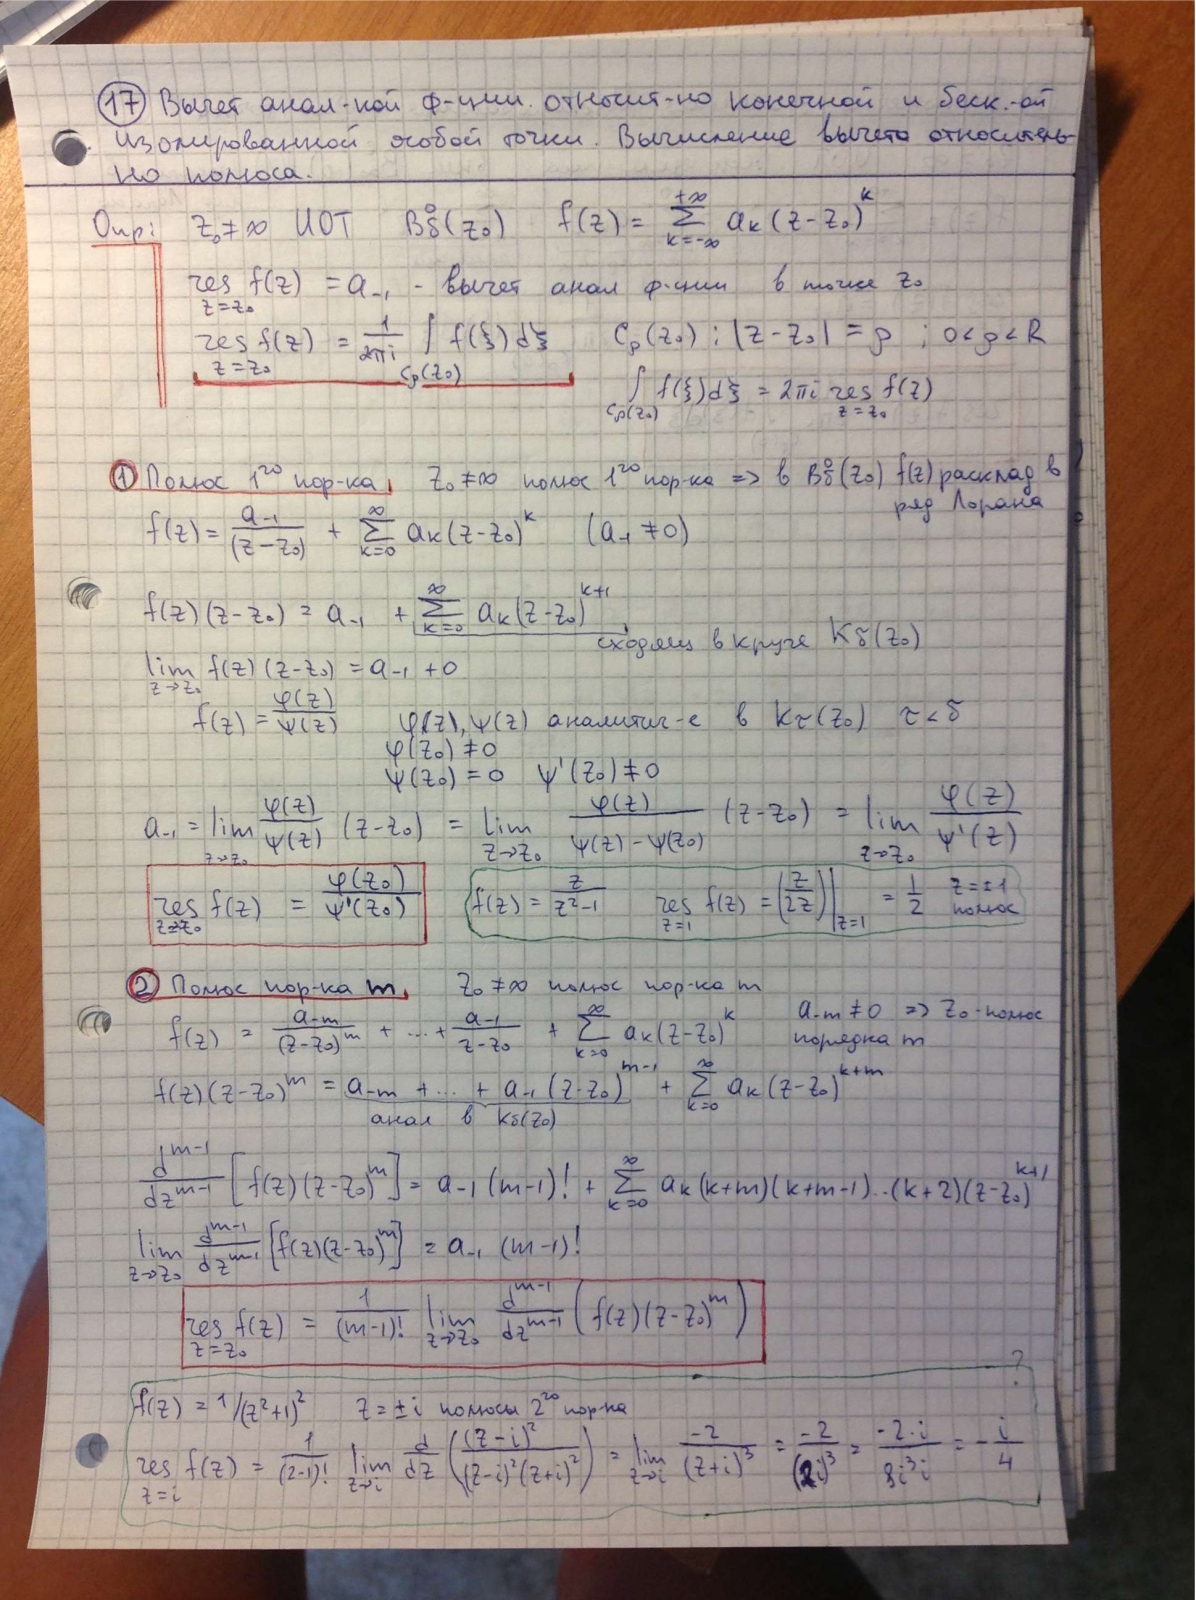 17 Вычет анал-кой ф-ции относит-но конечной и беск.-ой
изолированной особой точки. Вычисление вычета относитель-
но полюса.
Опр: z₀≠∞ ИОТ B°δ(z₀) f(z) = Σ_{k=-∞}^{+∞} aₖ(z-z₀)^k
res_{z=z₀} f(z) = a₋₁ - вычет анал ф-ции в точке z₀
res_{z=z₀} f(z) = 1/(2πi) ∫_{Cρ(z₀)} f(ξ)dξ Cρ(z₀): |z-z₀| = ρ ; 0<ρ<R
∫_{Cρ(z₀)} f(ξ)dξ = 2πi res_{z=z₀} f(z)
1 Полюс 1го пор-ка. z₀≠∞ полюс 1го пор-ка => в B°δ(z₀) f(z) расклад в
ряд Лорана
f(z) = a₋₁/(z-z₀) + Σ_{k=0}^{∞} aₖ(z-z₀)^k (a₋₁≠0)
f(z)(z-z₀) = a₋₁ + Σ_{k=0}^{∞} aₖ(z-z₀)^{k+1}
сходящ в круге Kδ(z₀)
lim_{z→z₀} f(z)(z-z₀) = a₋₁ + 0
f(z) = φ(z)/ψ(z) φ(z), ψ(z) аналитич-е в Kτ(z₀) τ<δ
φ(z₀)≠0
ψ(z₀)=0 ψ'(z₀)≠0
a₋₁ = lim_{z→z₀} φ(z)/ψ(z) (z-z₀) = lim_{z→z₀} φ(z)/(ψ(z)-ψ(z₀)) (z-z₀) = lim_{z→z₀} φ(z)/ψ'(z)
res_{z=z₀} f(z) = φ(z₀)/ψ'(z₀) f(z) = z/(z²-1) res_{z=1} f(z) = (z/2z)|_{z=1} = 1/2 z=±1 полюс
2 Полюс пор-ка m. z₀≠∞ полюс пор-ка m
f(z) = a₋ₘ/(z-z₀)^m + ... + a₋₁/(z-z₀) + Σ_{k=0}^{∞} aₖ(z-z₀)^k a₋ₘ≠0 => z₀-полюс
порядка m
f(z)(z-z₀)^m = a₋ₘ + ... + a₋₁(z-z₀)^{m-1} + Σ_{k=0}^{∞} aₖ(z-z₀)^{k+m}
анал в Kδ(z₀)
d^{m-1}/dz^{m-1} [f(z)(z-z₀)^m] = a₋₁(m-1)! + Σ_{k=0}^{∞} aₖ(k+m)(k+m-1)..(k+2)(z-z₀)^{k+1}
lim_{z→z₀} d^{m-1}/dz^{m-1} [f(z)(z-z₀)^m] = a₋₁ (m-1)!
res_{z=z₀} f(z) = 1/(m-1)! lim_{z→z₀} d^{m-1}/dz^{m-1} (f(z)(z-z₀)^m)
?
f(z) = 1/(z²+1)² z=±i полюсы 2го пор-ка
res_{z=i} f(z) = 1/(2-1)! lim_{z→i} d/dz ((z-i)²/((z-i)²(z+i)²)) = lim_{z→i} -2/(z+i)³ = -2/(2i)³ = -2·i/8i³i = -i/4